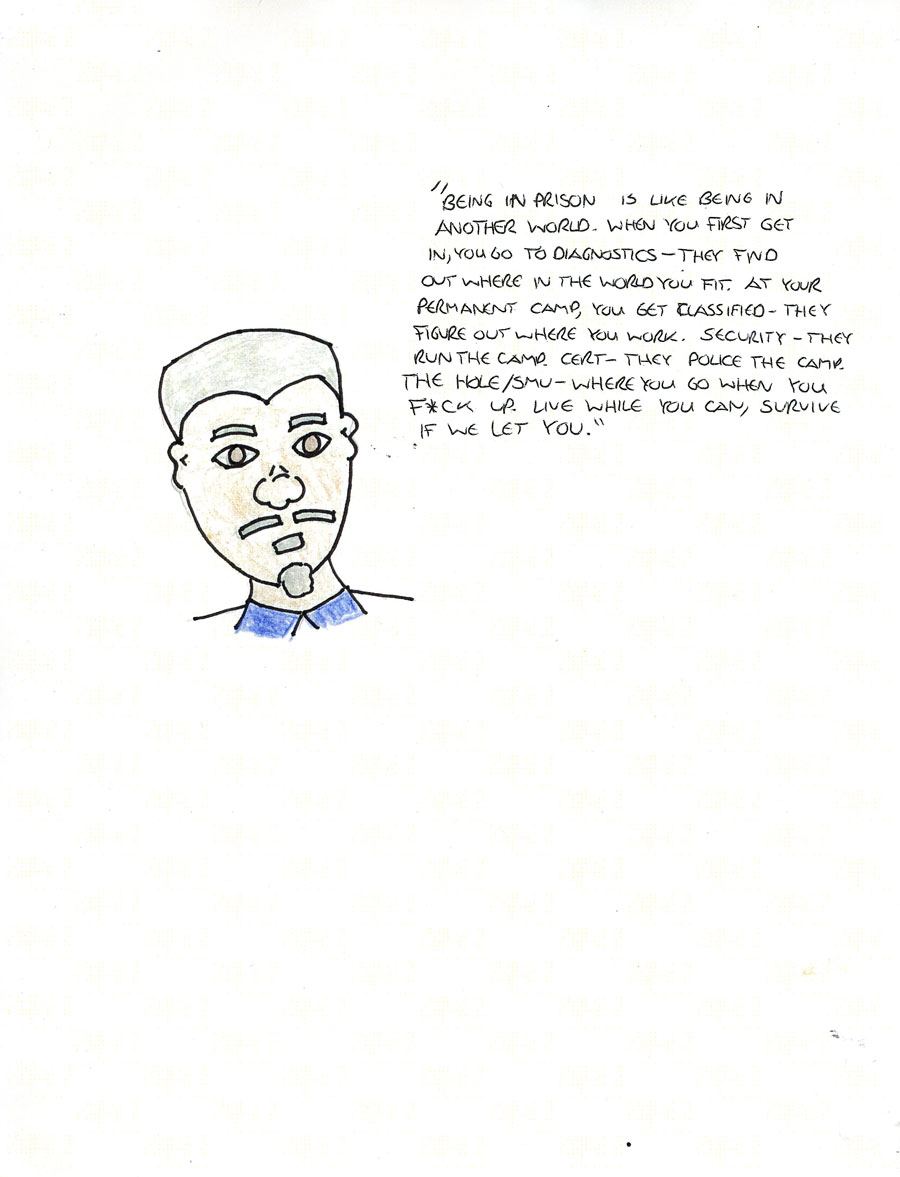 "BEING IN PRISON IS LIKE BEING IN
ANOTHER WORLD. WHEN YOU FIRST GET
IN, YOU GO TO DIAGNOSTICS - THEY FIND
OUT WHERE IN THE WORLD YOU FIT. AT YOUR
PERMANENT CAMP, YOU GET CLASSIFIED - THEY
FIGURE OUT WHERE YOU WORK. SECURITY - THEY
RUN THE CAMP. CERT - THEY POLICE THE CAMP.
THE HOLE/SMU - WHERE YOU GO WHEN YOU
F*CK UP. LIVE WHILE YOU CAN, SURVIVE
IF WE LET YOU."